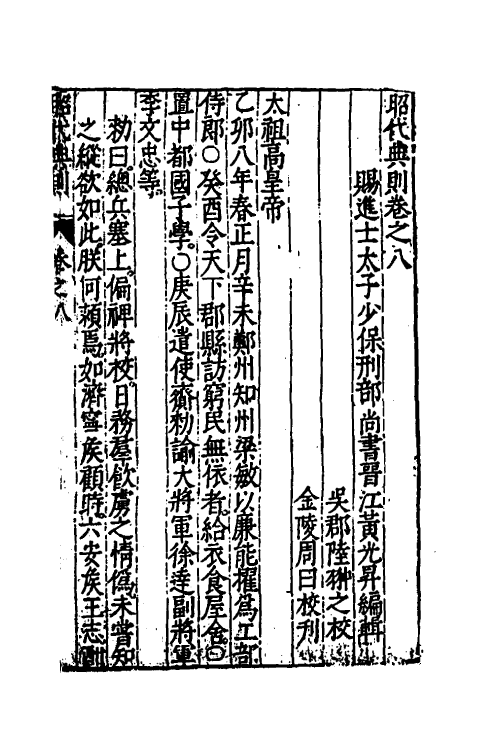 昭代典則卷之八
賜進士太子少保刑部尚書晉江黃光昇編輯
吳郡陸翀之校
金陵周曰校刋
太祖高皇帝
乙卯八年春正月辛未鄭州知州梁敏以廉能擢爲工部
侍郎〇癸酉令天下郡縣訪窮民無依者給衣食屋舍〇
置中都國子學〇庚辰遣使齎勑諭大將軍徐達副將軍
李文忠等
勑曰總兵塞上偏裨將校日務屋飲虜之情僞未嘗知
之縱欲如此朕何頼焉如濟寧侯顧時六安侯王志
昭代典則 卷之八